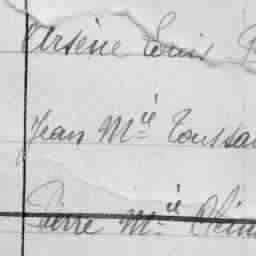 Arsène Louis
Jean Mie Toussa
Pierre Mie